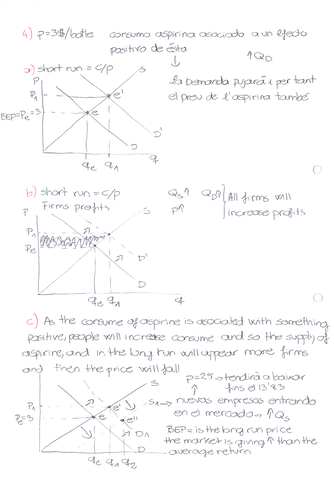 4) p=3$/botle consumo aspirina asociado a un efecto
positivo de ésta
↓ ↑QD
a) short run = c/p
La demanda pujarà i per tant
el preu de l'aspirina també
P
S
P1
e'
BEP=Pe=3
e
D'
D
qe q1 q
b) short run = c/p
Firms profits
QS↑ QD↑ All firms will
P↑ increase profits
P
S
P1
Pe
D'
D
qe q1 q
c) As the consume of aspirine is asociated with something
positive, people will increase consume and so the supply of
aspirine, and in the long run will appear more firms
and then the price will fall
p=25→tendirà a baixar
fins el 13'83
S
S1→nuevas empresas entrando
en el mercado→↑QS
P1
Pe=3
e e' e''
D1
D
BEP=is the long run price
the market is giving ↑ than the
average return
qe q1 q2